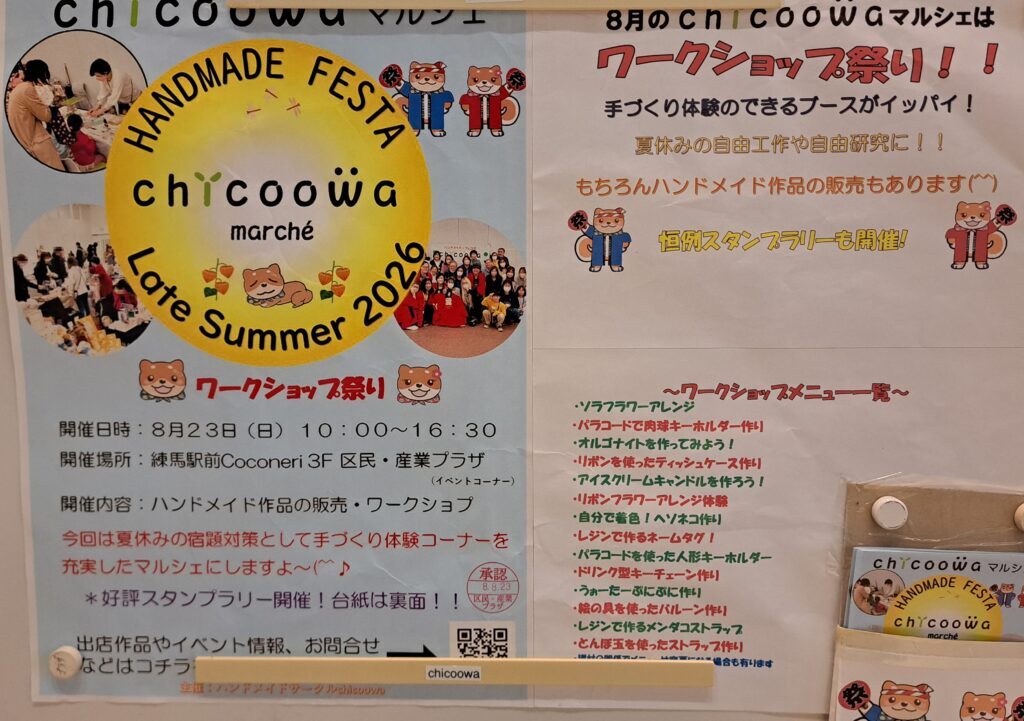 chicoowaマルシェ
HANDMADE FESTA
chicoowa
marché
Late Summer 2026
ワークショップ祭り
開催日時：8月23日（日）　10：00～16：30
開催場所：練馬駅前Coconeri 3F 区民・産業プラザ
（イベントコーナー）
開催内容：ハンドメイド作品の販売・ワークショプ
今回は夏休みの宿題対策として手づくり体験コーナーを
充実したマルシェにしますよ～(^^♪
＊好評スタンプラリー開催！台紙は裏面！！
承認
8.8.23
区民・産業
プラザ
出店作品やイベント情報、お問合せ
などはコチラ
chicoowa
主催：ハンドメイドサークルchicoowa
8月のchicoowaマルシェは
ワークショップ祭り！！
手づくり体験のできるブースがイッパイ！
夏休みの自由工作や自由研究に！！
もちろんハンドメイド作品の販売もあります(^^)
祭
祭
恒例スタンプラリーも開催!
～ワークショップメニュー一覧～
・ソラフラワーアレンジ
・パラコードで肉球キーホルダー作り
・オルゴナイトを作ってみよう！
・リボンを使ったティッシュケース作り
・アイスクリームキャンドルを作ろう！
・リボンフラワーアレンジ体験
・自分で着色！ヘソネコ作り
・レジンで作るネームタグ！
・パラコードを使った人形キーホルダー
・ドリンク型キーチェーン作り
・うぉーたーぷにぷに作り
・絵の具を使ったバルーン作り
・レジンで作るメンダコストラップ
・とんぼ玉を使ったストラップ作り
場合も有ります
chicoowaマルシ
HANDMADE FESTA
chicoowa
marché
祭